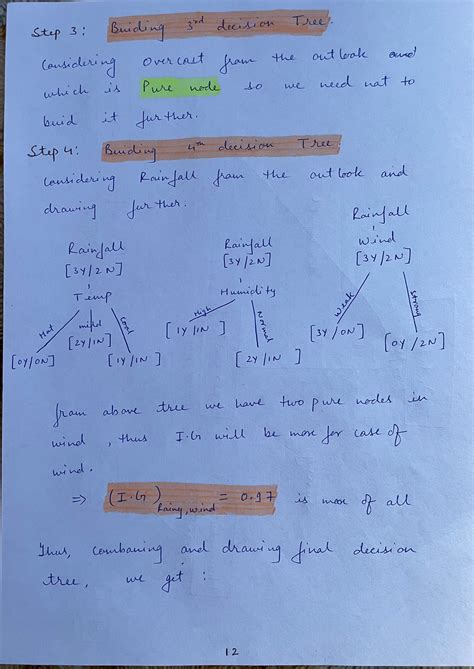 Step 3: Buiding 3rd decision Tree:
Considering overcast from the outlook and
which is Pure node so we need not to
buid it further.
Step 4: Buiding 4th decision Tree:
Considering Rainfall from the outlook and
drawing further.
Rainfall
[3Y/2N]
Temp
Hot mild Cool
[0Y/0N] [2Y/1N] [1Y/1N]
Rainfall
[3Y/2N]
Humidity
High Normal
[1Y/1N] [2Y/1N]
Rainfall
Wind
[3Y/2N]
Weak Strong
[3Y/0N] [0Y/2N]
from above tree we have two pure nodes in
wind, thus I.G will be more for case of
wind.
⇒ (I.G)Rainy, wind = 0.97 is more of all
Thus, combaning and drawing final decision
tree, we get:
12